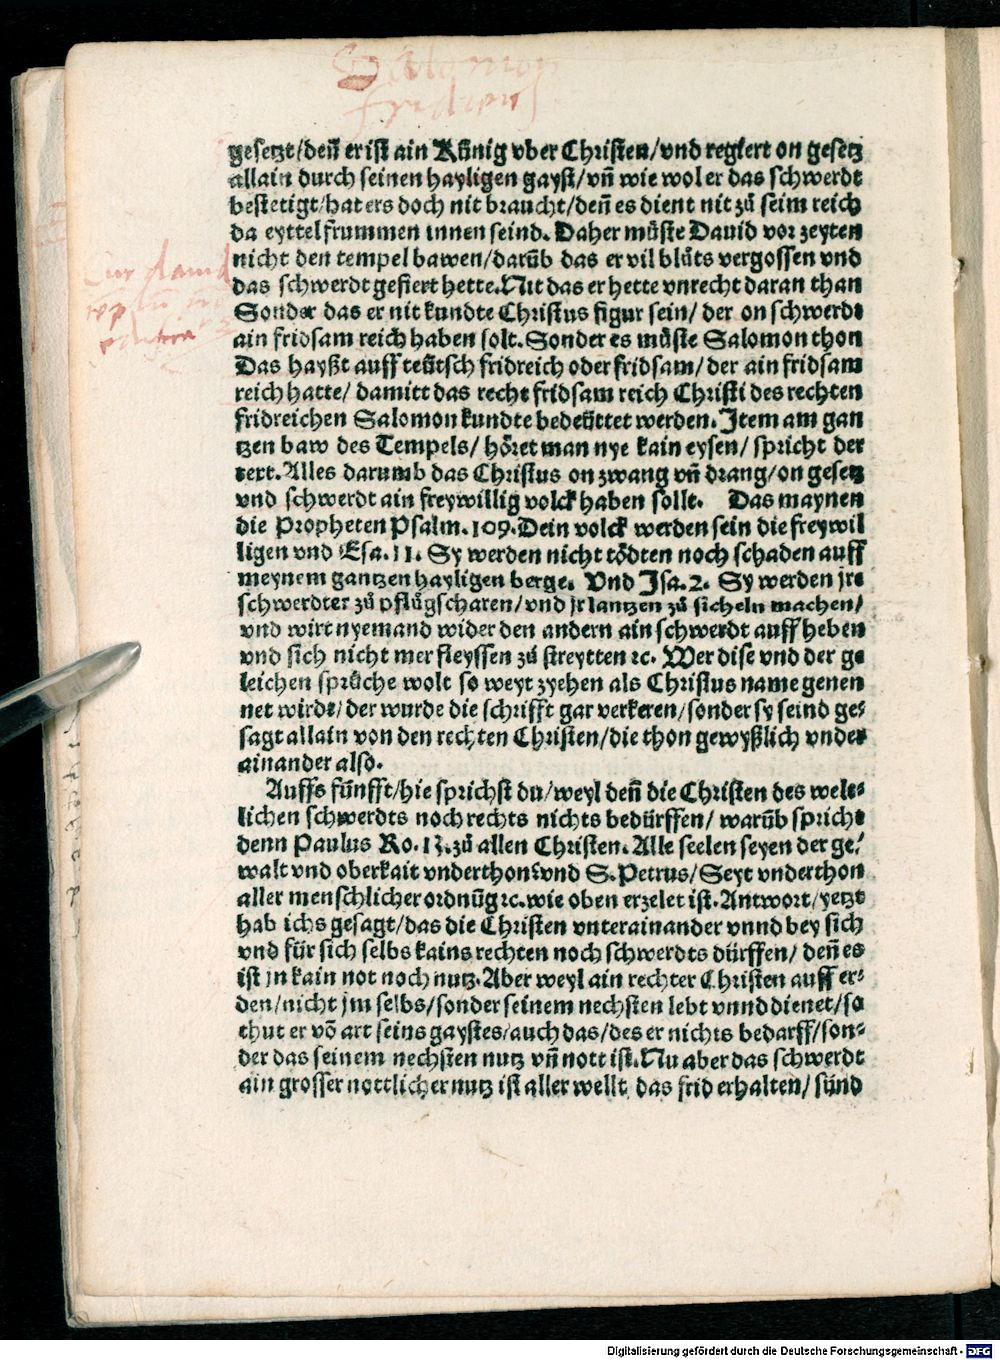 Salomon
fridreich
gesetzt/deñ er ist ain Künig vber Christen/vnd regiert on gesetz
allain durch seinen hayligen gayst/vñ wie wol er das schwerdt
bestetigt/hat ers doch nit braucht/deñ es dient nit zů seim reich
da eyttel frummen innen seind. Daher můste Dauid vor zeyten
nicht den tempel bawen/darũb das er vil blůts vergossen vnd
das schwerdt gefiert hette. Nit das er hette vnrecht daran than
Sonder das er nit kundte Christus figur sein/ der on schwerdt
ain fridsam reich haben solt. Sonder es můste Salomon thon
Das hayßt auff teütsch fridreich oder fridsam/ der ain fridsam
reich hatte/ damitt das recht fridsam reich Christi des rechten
fridreichen Salomon kundte bedeüttet werden. Item am gan
tzen baw des Tempels/ höret man nye kain eysen/ spricht der
text. Alles darumb das Christus on zwang vñ drang/on gesetz
vnd schwerdt ain freywillig volck haben sollt. Das maynen
die Propheten Psalm. 109. Dein volck werden sein die freywil
ligen vnd Esa. 11. Sy werden nicht tödten noch schaden auff
meynem gantzen hayligen berge. Vnd Isa. 2. Sy werden jre
schwerdter zů pflůgscharen/vnd jr lantzen zů sicheln machen/
vnd wirt nyemand wider den andern ain schwerdt auff heben
vnd sich nicht mer fleyssen zů streytten ꝛc. Wer dise vnd der ge
leichen sprüche wolt so weyt zyehen als Christus name genen
net wirdt/der wurde die schrifft gar verkeren/sonder sy seind ge⸗
sagt allain von den rechten Christen/die thon gewyßlich vnder
ainander also.
Auffs fünfft/hie sprichst du/weyl deñ die Christen des welt⸗
lichen schwerdts noch rechts nichts bedürffen/ warũb spricht
denn Paulus Ro. 13. zů allen Christen. Alle seelen seyen der ge⸗
walt vnd oberkait vnderthon? vnd S. Petrus/ Seyt vnderthon
aller menschlicher ordnũg ꝛc. wie oben erzelet ist. Antwort/yetzt
hab ichs gesagt/das die Christen vnterainander vnnd bey sich
vnd für sich selbs kains rechten noch schwerdts dürffen/ deñ es
ist jn kain not noch nutz. Aber weyl ain rechter Christen auff er⸗
den/nicht jm selbs/sonder seinem nechsten lebt vnnd dienet/so
thut er võ art seins gaystes/auch das/des er nichts bedarff/son⸗
der das seinem nechsten nutz vñ nott ist. Nu aber das schwerdt
ain grosser nottlicher nutz ist aller wellt das frid erhalten/ sünd
Cur dauid
Digitalisierung gefördert durch die Deutsche Forschungsgemeinschaft - DFG